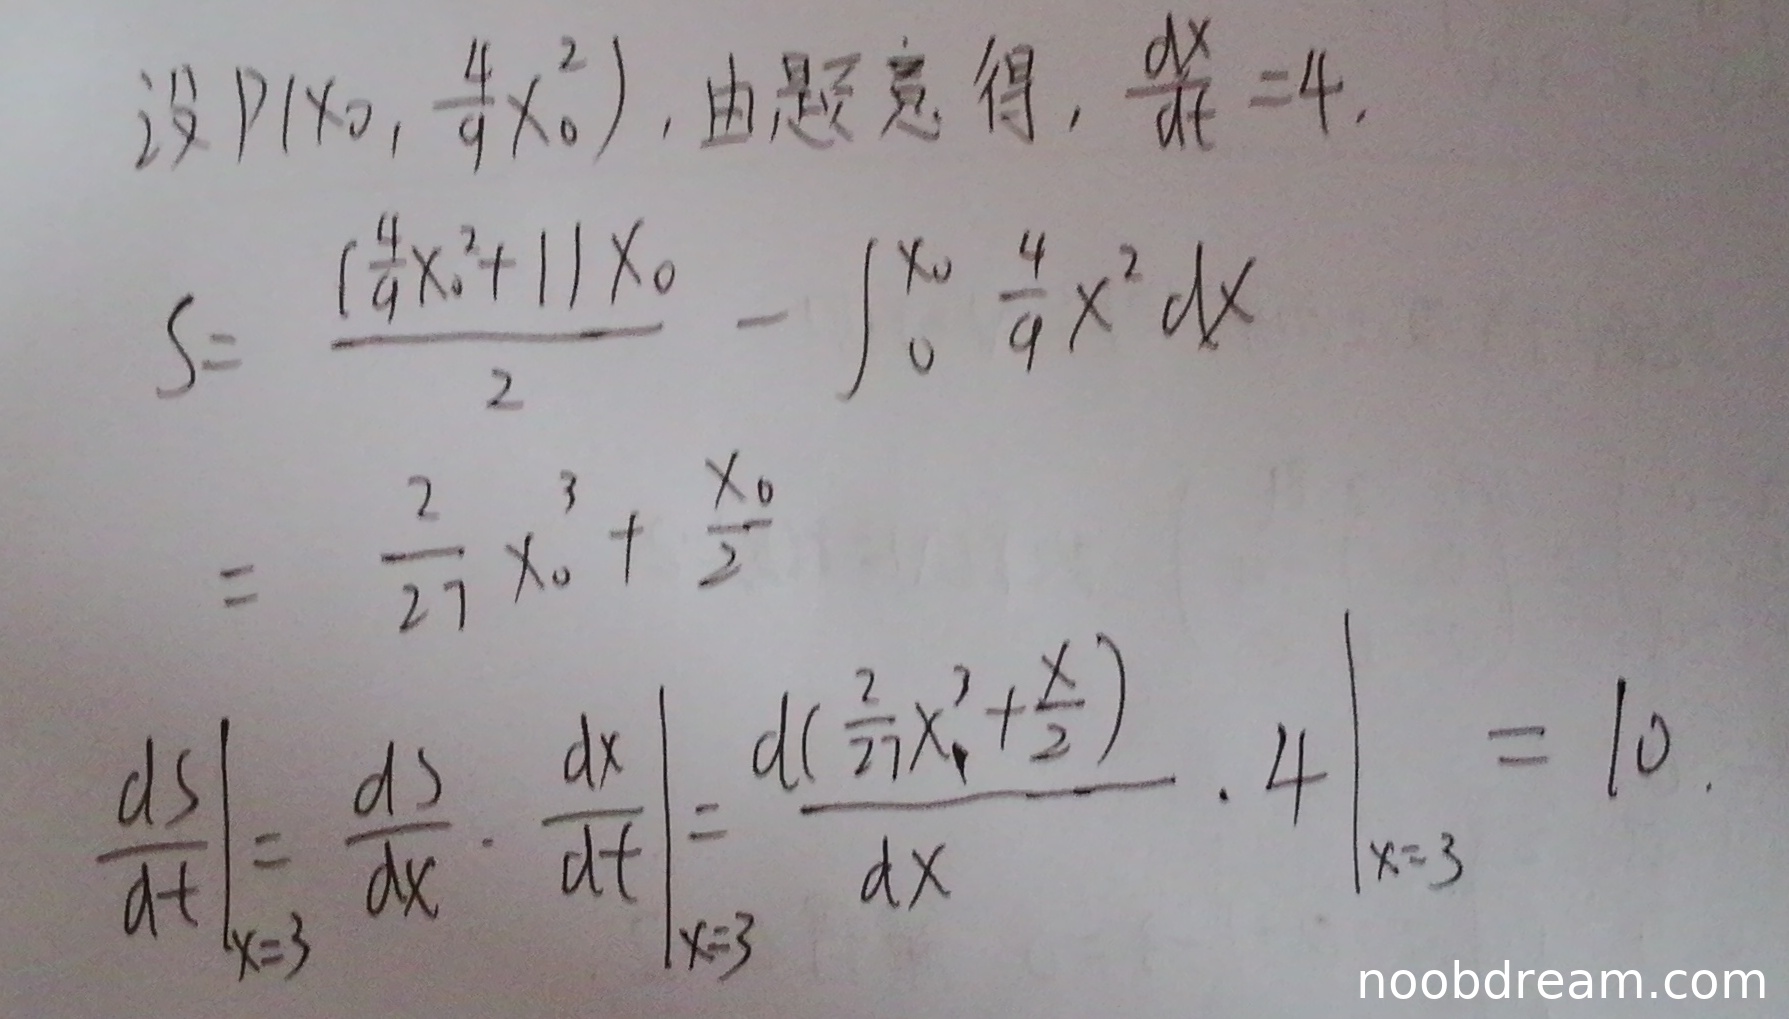 设P(x₀, 4/9 x₀²), 由题意得, dx/dt = 4.
S = ((4/9 x₀² + 1) x₀)/2 - ∫₀^x₀ 4/9 x² dx
= 2/27 x₀³ + x₀/2
dS/dt |ₓ₌₃ = dS/dx · dx/dt |ₓ₌₃ = d(2/27 x³ + x/2)/dx · 4 |ₓ₌₃ = 10.
noobdream.com